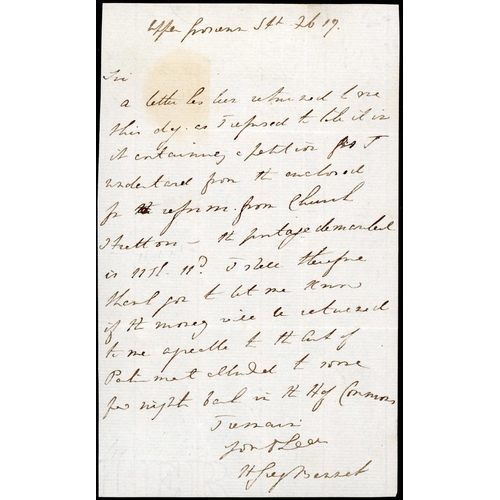 Upper Grosvenor St 26 19.
Sir
a letter has been returned to me
this day. as I refused to take it in
it containing a petition as I
understand from the enclosed
for the reform. from Church
Stretton – the postage demanded
is 11d. I shall therefore
thank you to let me know
if the money will be returned
to me agreeable to the Act of
Parliament alluded to some
few nights back in the H of Commons
I remain
your ob
H Grey Bennet